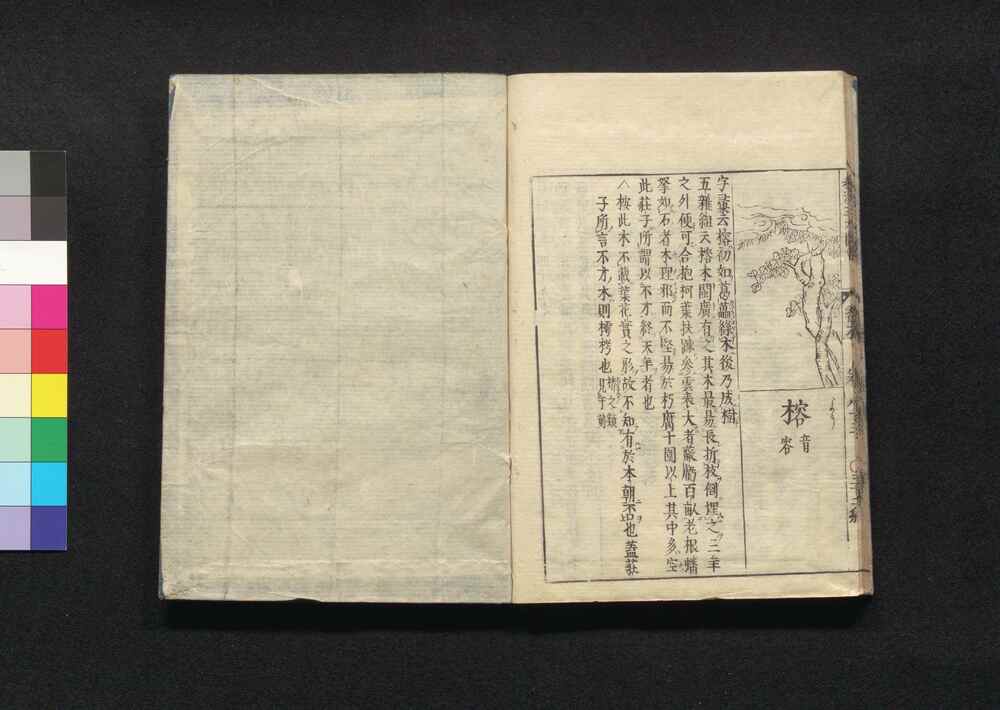 榕
音容
よう
字彙云榕初如葛藟緣木後乃成樹
五雜組云榕木閩廣有之其木最易長折枝倒埋之三年
之外便可合抱柯葉扶踈參雲表大者蔽虧百畝老根蟠
拏如石者木理邪而不堅易於朽腐十圍以上其中多空
此莊子所謂以不才終天年者也
△按此木不載葉花實之形故不知有於本朝否也蓋莊
子所言不才木則樗栲也